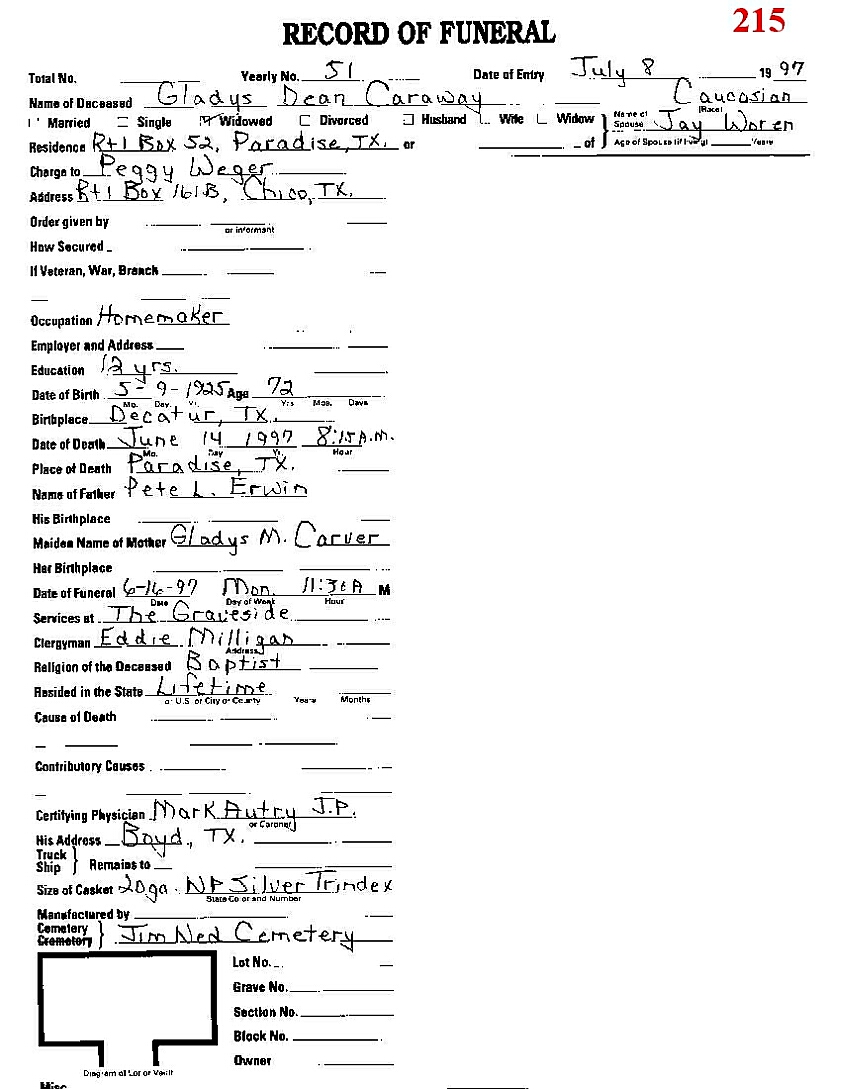 215
RECORD OF FUNERAL
Total No. Yearly No. 51 Date of Entry July 8 1997
Name of Deceased Gladys Dean Caraway Caucasian
(Race)
Married Single Widowed Divorced Husband Wife Widow } Name of Spouse Jay Woren
Residence Rt 1 Box 52, Paradise, TX. or of } Age of Spouse (if living) Years
Charge to Peggy Weger
Address Rt 1 Box 161B, Chico, TX.
Order given by
or informant
How Secured
If Veteran, War, Branch
Occupation Homemaker
Employer and Address
Education 12 yrs.
Date of Birth 5-9-1925 Age 72
Mo. Day Yr. Yrs Mos. Days
Birthplace Decatur, TX.
Date of Death June 14 1997 8:15 A.M.
Mo. Day Yr. Hour
Place of Death Paradise, TX.
Name of Father Pete L. Erwin
His Birthplace
Maiden Name of Mother Gladys M. Carver
Her Birthplace
Date of Funeral 6-16-97 Mon. 11:30 A M
Date Day of Week Hour
Services at The Graveside
Clergyman Eddie Milligan
Address
Religion of the Deceased Baptist
Resided in the State Lifetime
or U.S. or City or County Years Months
Cause of Death
Contributory Causes
Certifying Physician Mark Autry J.P.
or Coroner
His Address Boyd, TX.
Truck
Ship } Remains to
Size of Casket 20ga. NP Silver Trindex
State Color and Number
Manufactured by
Cemetery
Crematory } Jim Ned Cemetery
Lot No.
Grave No.
Section No.
Block No.
Owner
Diagram of Lot or Vault
Misc